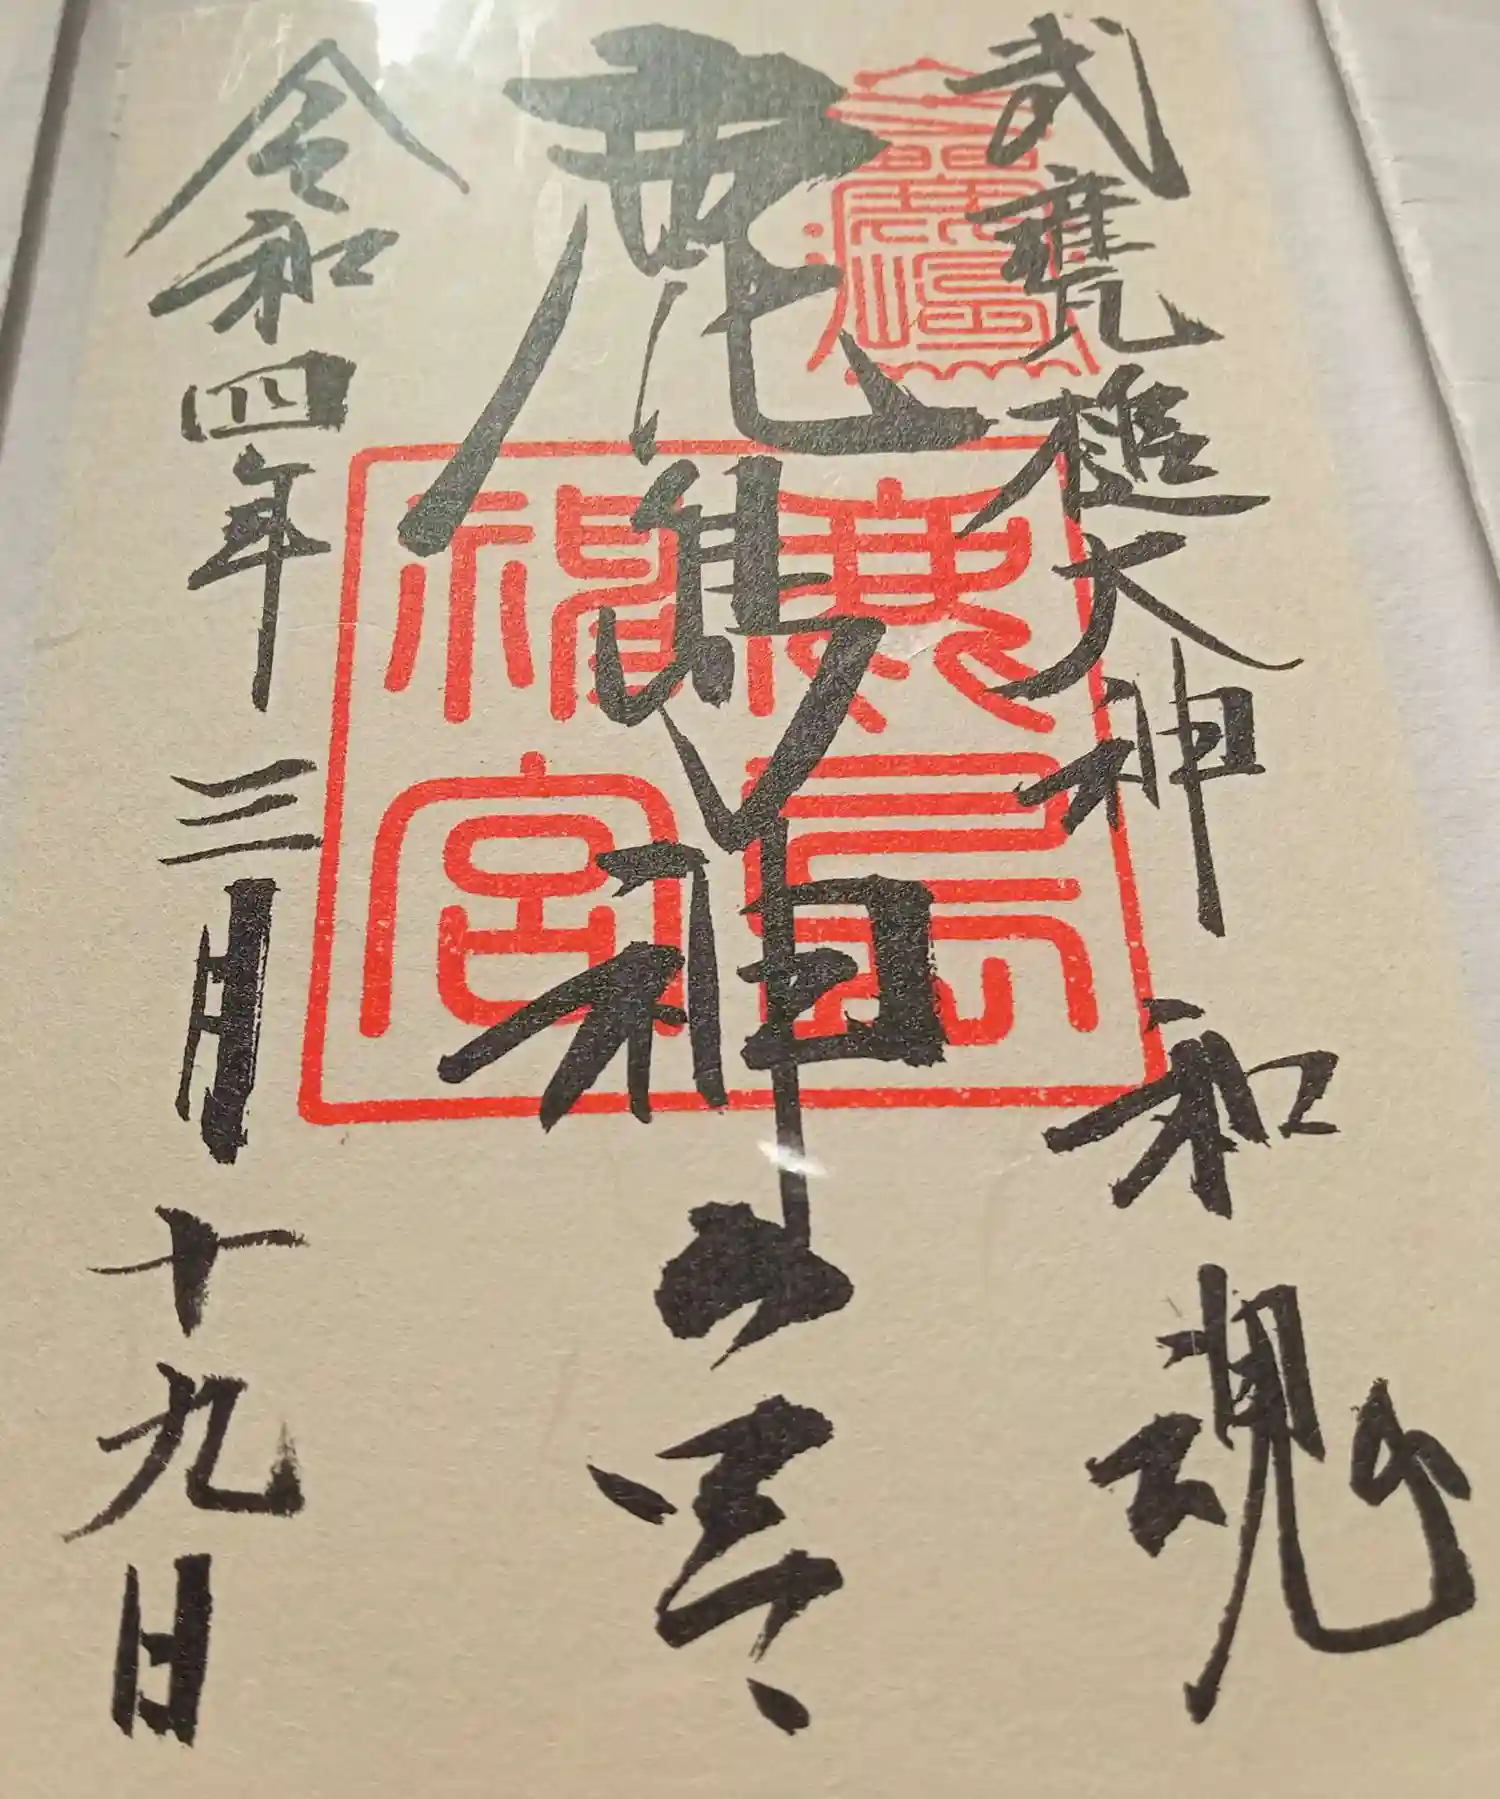 武甕槌大神 和魂
鹿島神宮
令和四年 三月十九日
鹿島
神宮